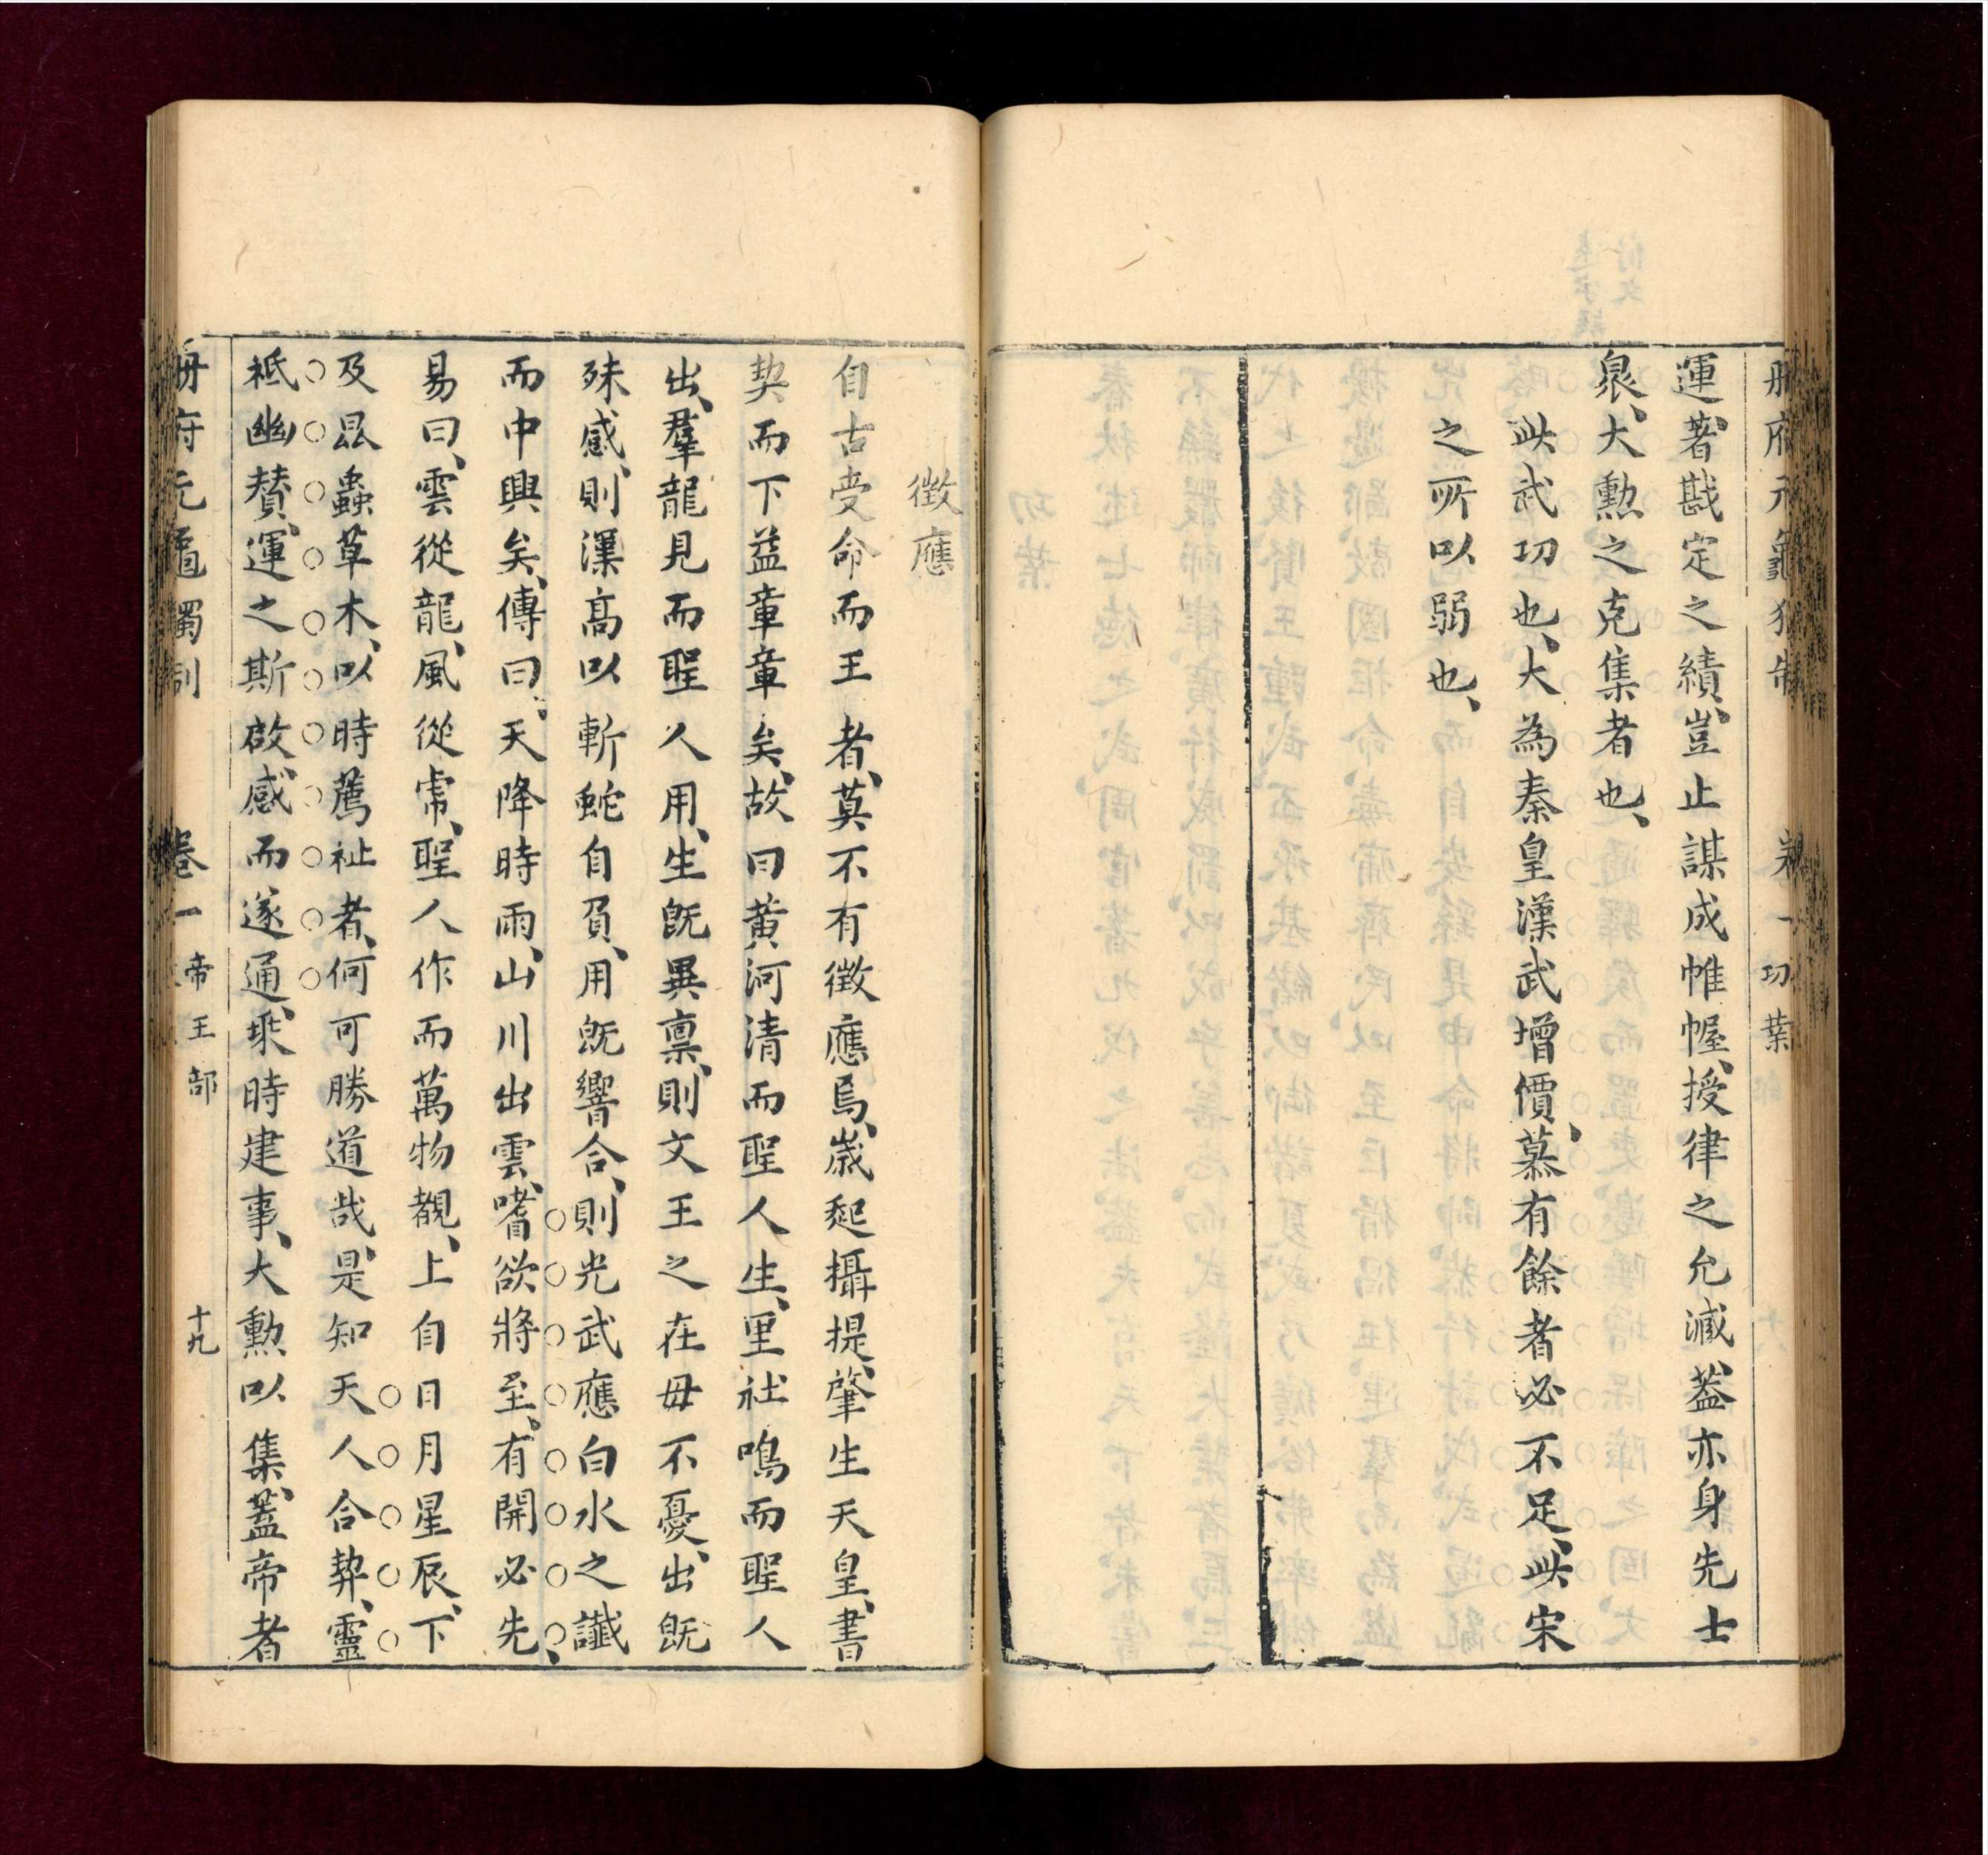 運、著戡定之績、豈止謀成帷幄、授律之允減、葢亦身先士
泉、大勲之克集者也、
此武功也、大為秦皇漢武增價、慕有餘者必不足、此宋
之所以弱也、
卷一功業
徵應
自古受命而王者、莫不有徵應焉、歲起攝提、肇生天皇、書
契而下益章章矣、故曰黃河清而聖人生、里社鳴而聖人
出、羣龍見而聖人用、生旣異稟、則文王之在毋不憂、出旣
殊感、則漢高以斬蛇自負、用旣響合、則光武應白水之讖
而中興矣、傳曰、天降時雨、山川出雲、嗜欲將至、有開必先、
易曰、雲從龍、風從虎、聖人作而萬物覩、上自日月星辰、下
及昆蟲草木、以時薦祉者、何可勝道哉、是知天人合契、靈
祗幽賛、運之斯啟、感而遂通、乘時建事、大勲以集、蓋帝者
冊府元龜獨制 卷一 帝王部 十九